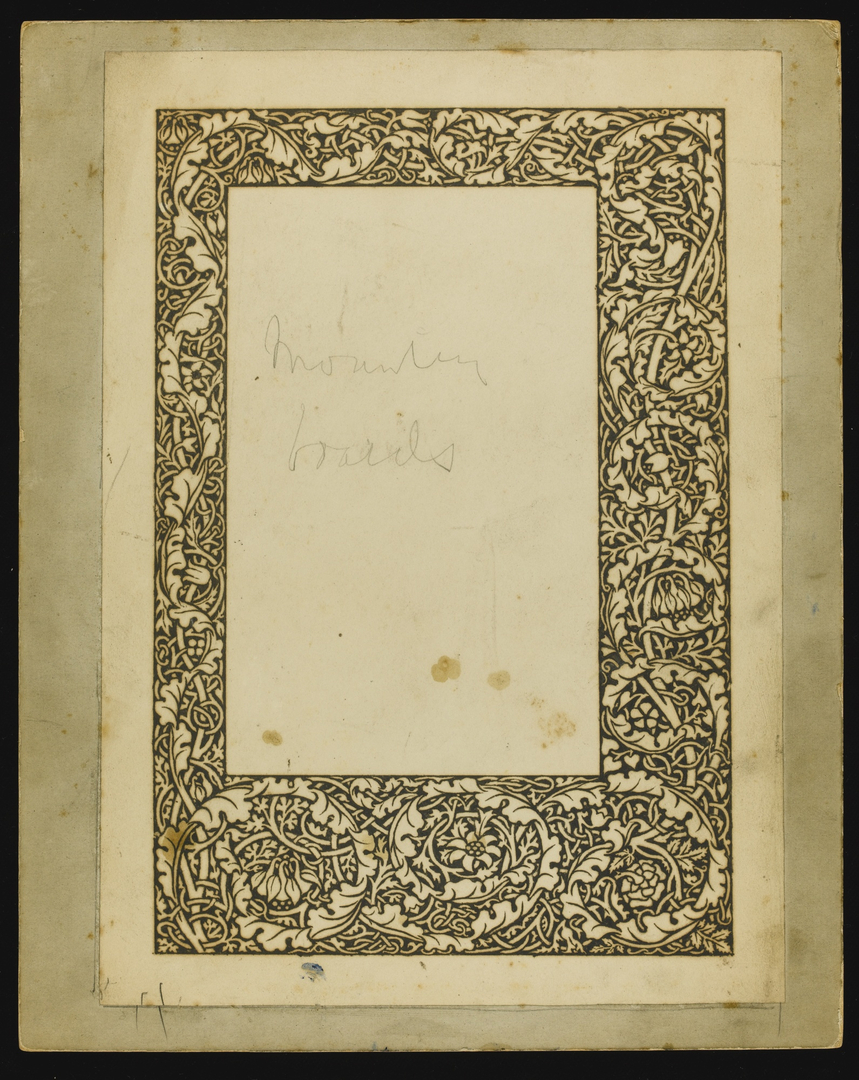 Mounting
boards